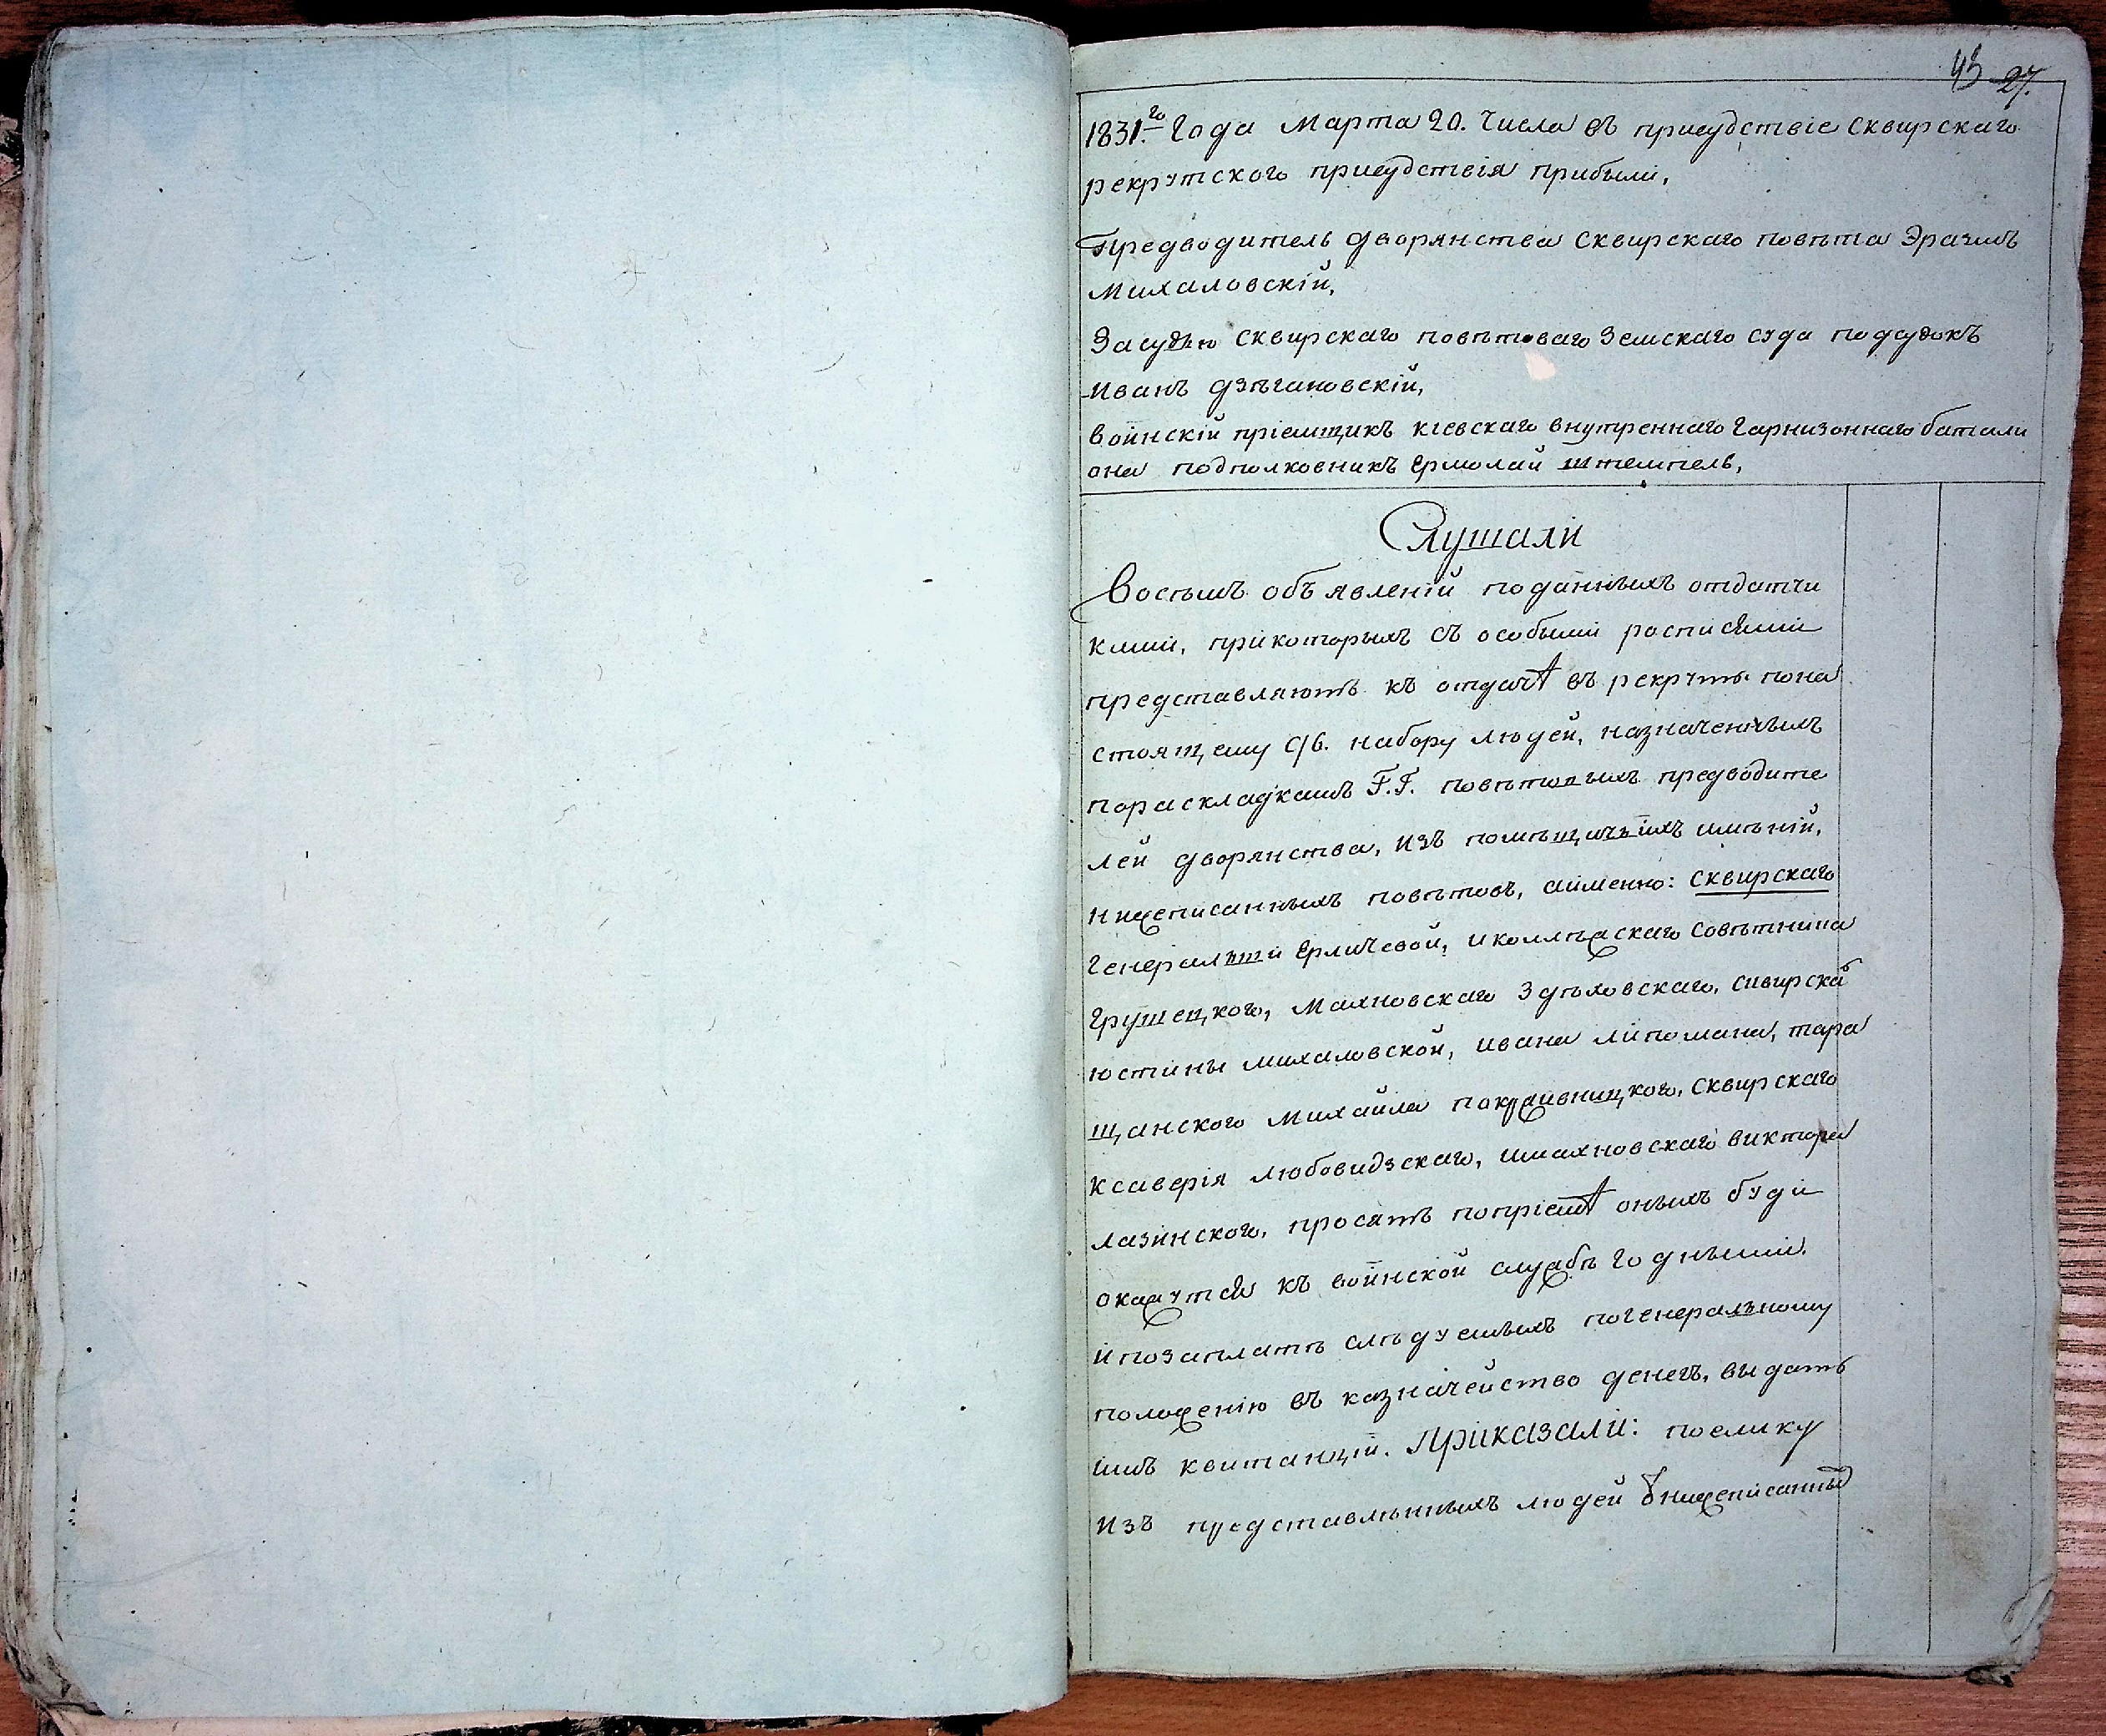 43 27.
1831.го Года Марта 20. Числа въ присудствіе сквирскаго
рекрутского присудствія прибыли,
Предводитель дворянства сквирскаго повѣта Эразмъ
Михаловскій,
Засудью сквирскаго повѣтоваго Земскаго суда подсудокъ
Иванъ дзѣгановскій,
воинскій пріемщикъ кіевскаго внутреннаго Гарнизоннаго батали
она подполковникъ Ермолай штемпель,
Слушали
Восѣмъ объявленій поданныхъ отдатчи
кмии, прикоторыхъ съ особыми росписями
представляютъ къ отдачѣ въ рекруты пона
стоящему 96. набору людей, назначенныхъ
пораскладкамъ Г.Г. повѣтовыхъ предводите
лей дворянства, изъ помѣщичьихъ имѣній,
нижеписанныхъ повѣтовъ, аименно: сквирскаго
Генеральши Ерличевой, иколлѣжскаго совѣтника
Грушецкого, Махновскаго Здѣховскаго, сквирскаго
юстины михаловской, ивана липомана, тара
щанского михайла покраивницкого, сквирскаго
ксаверія любовидзскаго, имахновскаго виктора
лазинского, просятъ попріемѣ оныхъ буди
окажутся къ воинской службѣ годными.
ипозаплатѣ слѣдуемыхъ погенеральному
положенію въ казначейство денегъ, выдать
имъ квитанціи. Приказали: поелику
изъ представлѣнныхъ людей нижеписанные